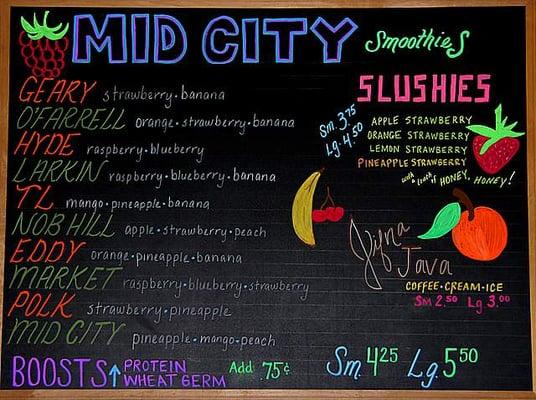 MID CITY Smoothies
GEARY strawberry•banana
O'FARRELL orange•strawberry•banana
HYDE raspberry•blueberry
LARKIN raspberry•blueberry•banana
TL mango•pineapple•banana
NOB HILL apple•strawberry•peach
EDDY orange•pineapple•banana
MARKET raspberry•blueberry•strawberry
POLK strawberry•pineapple
MID CITY pineapple•mango•peach
BOOSTS↑ PROTEIN
WHEAT GERM
Add .75¢
Sm. 4 25 Lg. 5 50
SLUSHIES
Sm. 3.75
Lg. 4.50
APPLE STRAWBERRY
ORANGE STRAWBERRY
LEMON STRAWBERRY
PINEAPPLE STRAWBERRY
with a touch of HONEY, HONEY!
Java
COFFEE•CREAM•ICE
Sm 2.50 Lg 3.00